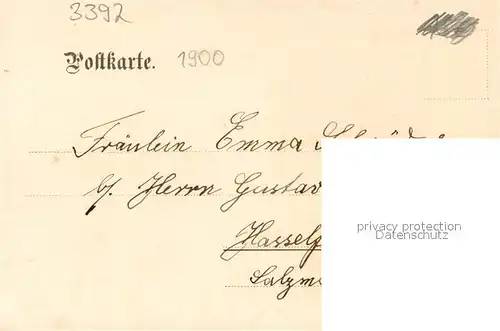 3392
Postkarte. 1900
Fräulein Emma
b/ Herrn Gustav
privacy protection
Datenschutz